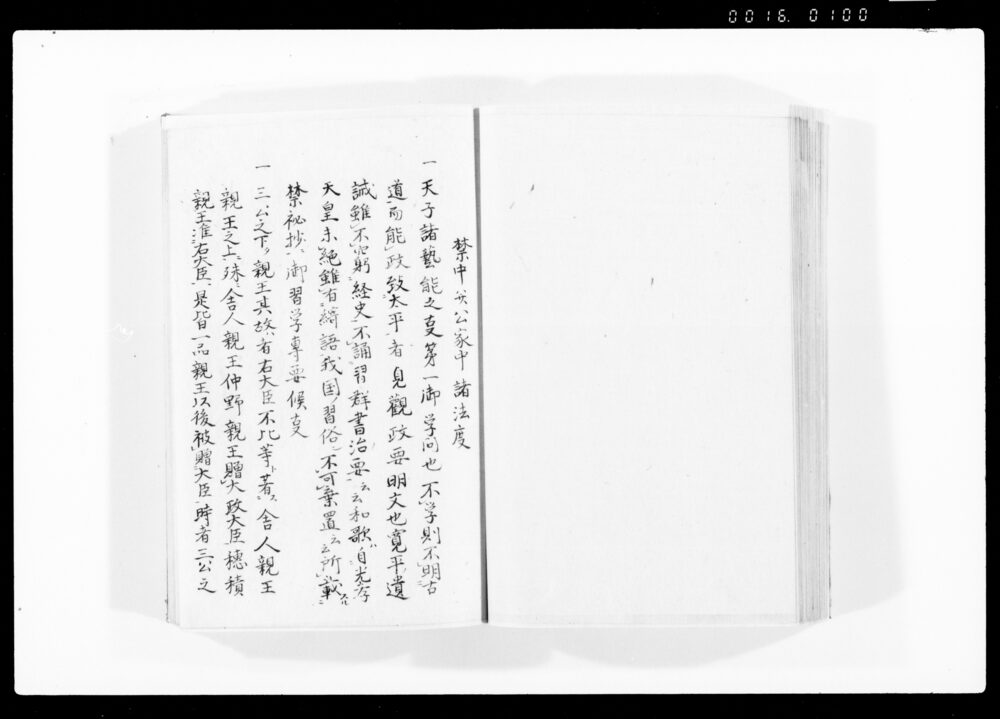 0016. 0100
禁中并公家中諸法度
一天子諸藝能之叓第一御学问也不学則不明古
道而能政致太平者見觀政要明文也寛平遺
誡雖不窮経史不誦習群書治要云云和歌自光孝
天皇未絶雖有綺語我国ノ習俗不可棄置云云所載
禁祕抄御習学専要候叓
一三公之下親王其故者右大臣不比等著舎人親王
親王之上殊舎人親王仲野親王贈大政大臣穗積
親王准右大臣是皆一品親王以後被贈大臣時者三公之